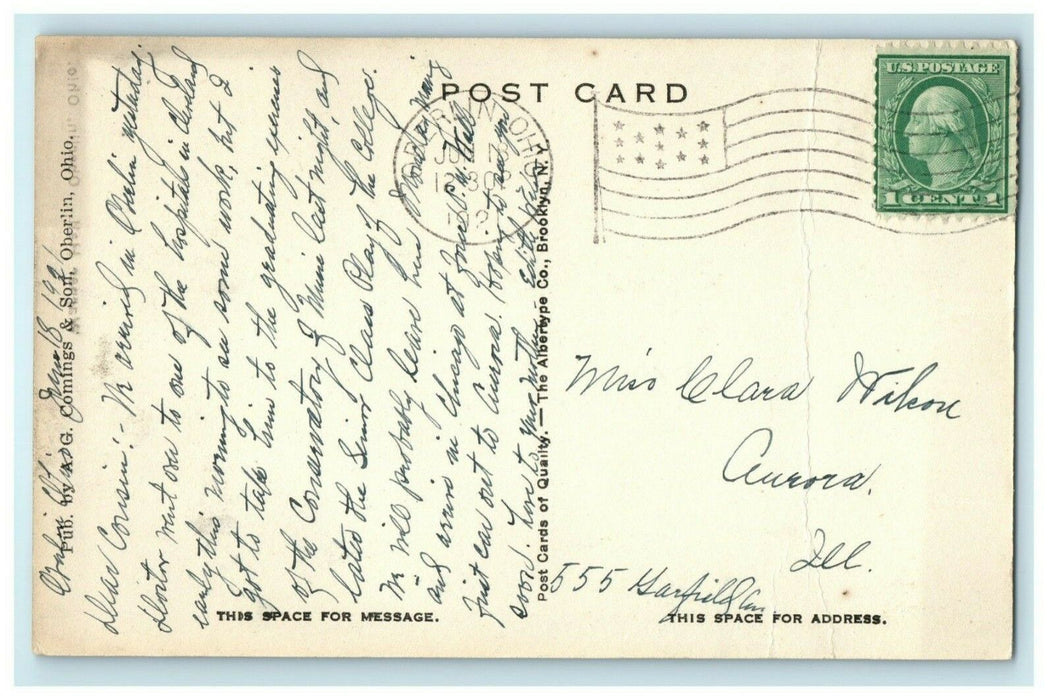 POST CARD
U.S. POSTAGE
1 CENT 1
OBERLIN, OHIO
Pub. by A. G. Comings & Son, Oberlin, Ohio.
June 18, 192
Dear Cousin:- We arrived in Oberlin yesterday.
Doctor went over to one of the hospitals in Cleveland
early this morning to see some work, but I
got to take him to the graduating exercises
of the Conservatory of Music last night, and
later the Senior Class Play of the College.
We will probably leave here Monday morning
and arrive in Chicago at
out to Aurora. Hoping to see you
soon. Love to your mother. Edith
Post Cards of Quality. — The Albertype Co., Brooklyn, N.Y.
Miss Clara Wilson
Aurora.
Ill.
555 Garfield Av.
THIS SPACE FOR MESSAGE.
THIS SPACE FOR ADDRESS.